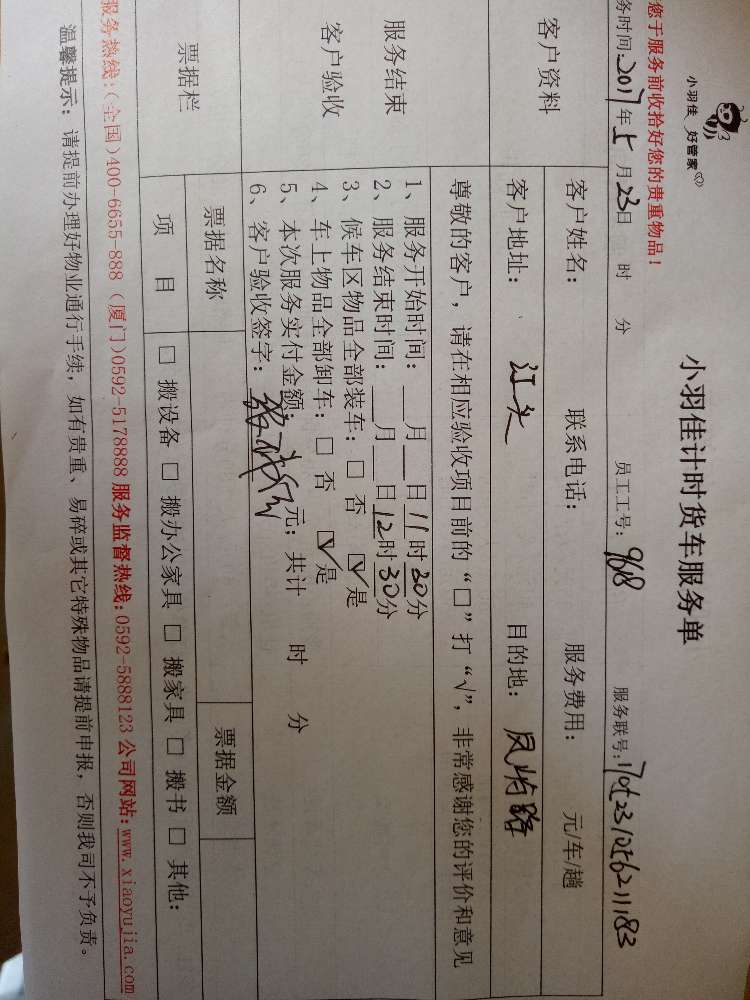 小羽佳 好管家
小羽佳计时货车服务单
您于服务前收拾好您的贵重物品!
务时间:2017年5月23日 时 分 员工工号:968 服务联号:170523105621183
客户资料
客户姓名: 联系电话: 服务费用: 元/车/趟
客户地址: 江头 目的地: 凤屿路
服务结束
客户验收
尊敬的客户,请在相应验收项目前的“□”打“√”,非常感谢您的评价和意见
1、服务开始时间:__月__日11时30分
2、服务结束时间:__月__日12时30分
3、候车区物品全部装车:□ 否 ☑是
4、车上物品全部卸车:□ 否 ☑是
5、本次服务实付金额: 元;共计 时 分
6、客户验收签字:
票据栏
票据名称 票据金额
项 目 □ 搬设备 □ 搬办公家具 □ 搬家具 □ 搬书 □ 其他:
服务热线:(全国)400-6655-888 (厦门)0592-5178888 服务监督热线:0592-5888123 公司网站:www.xiaoyujia.com
温馨提示: 请提前办理好物业通行手续,如有贵重、易碎或其它特殊物品请提前申报,否则我司不予负责。